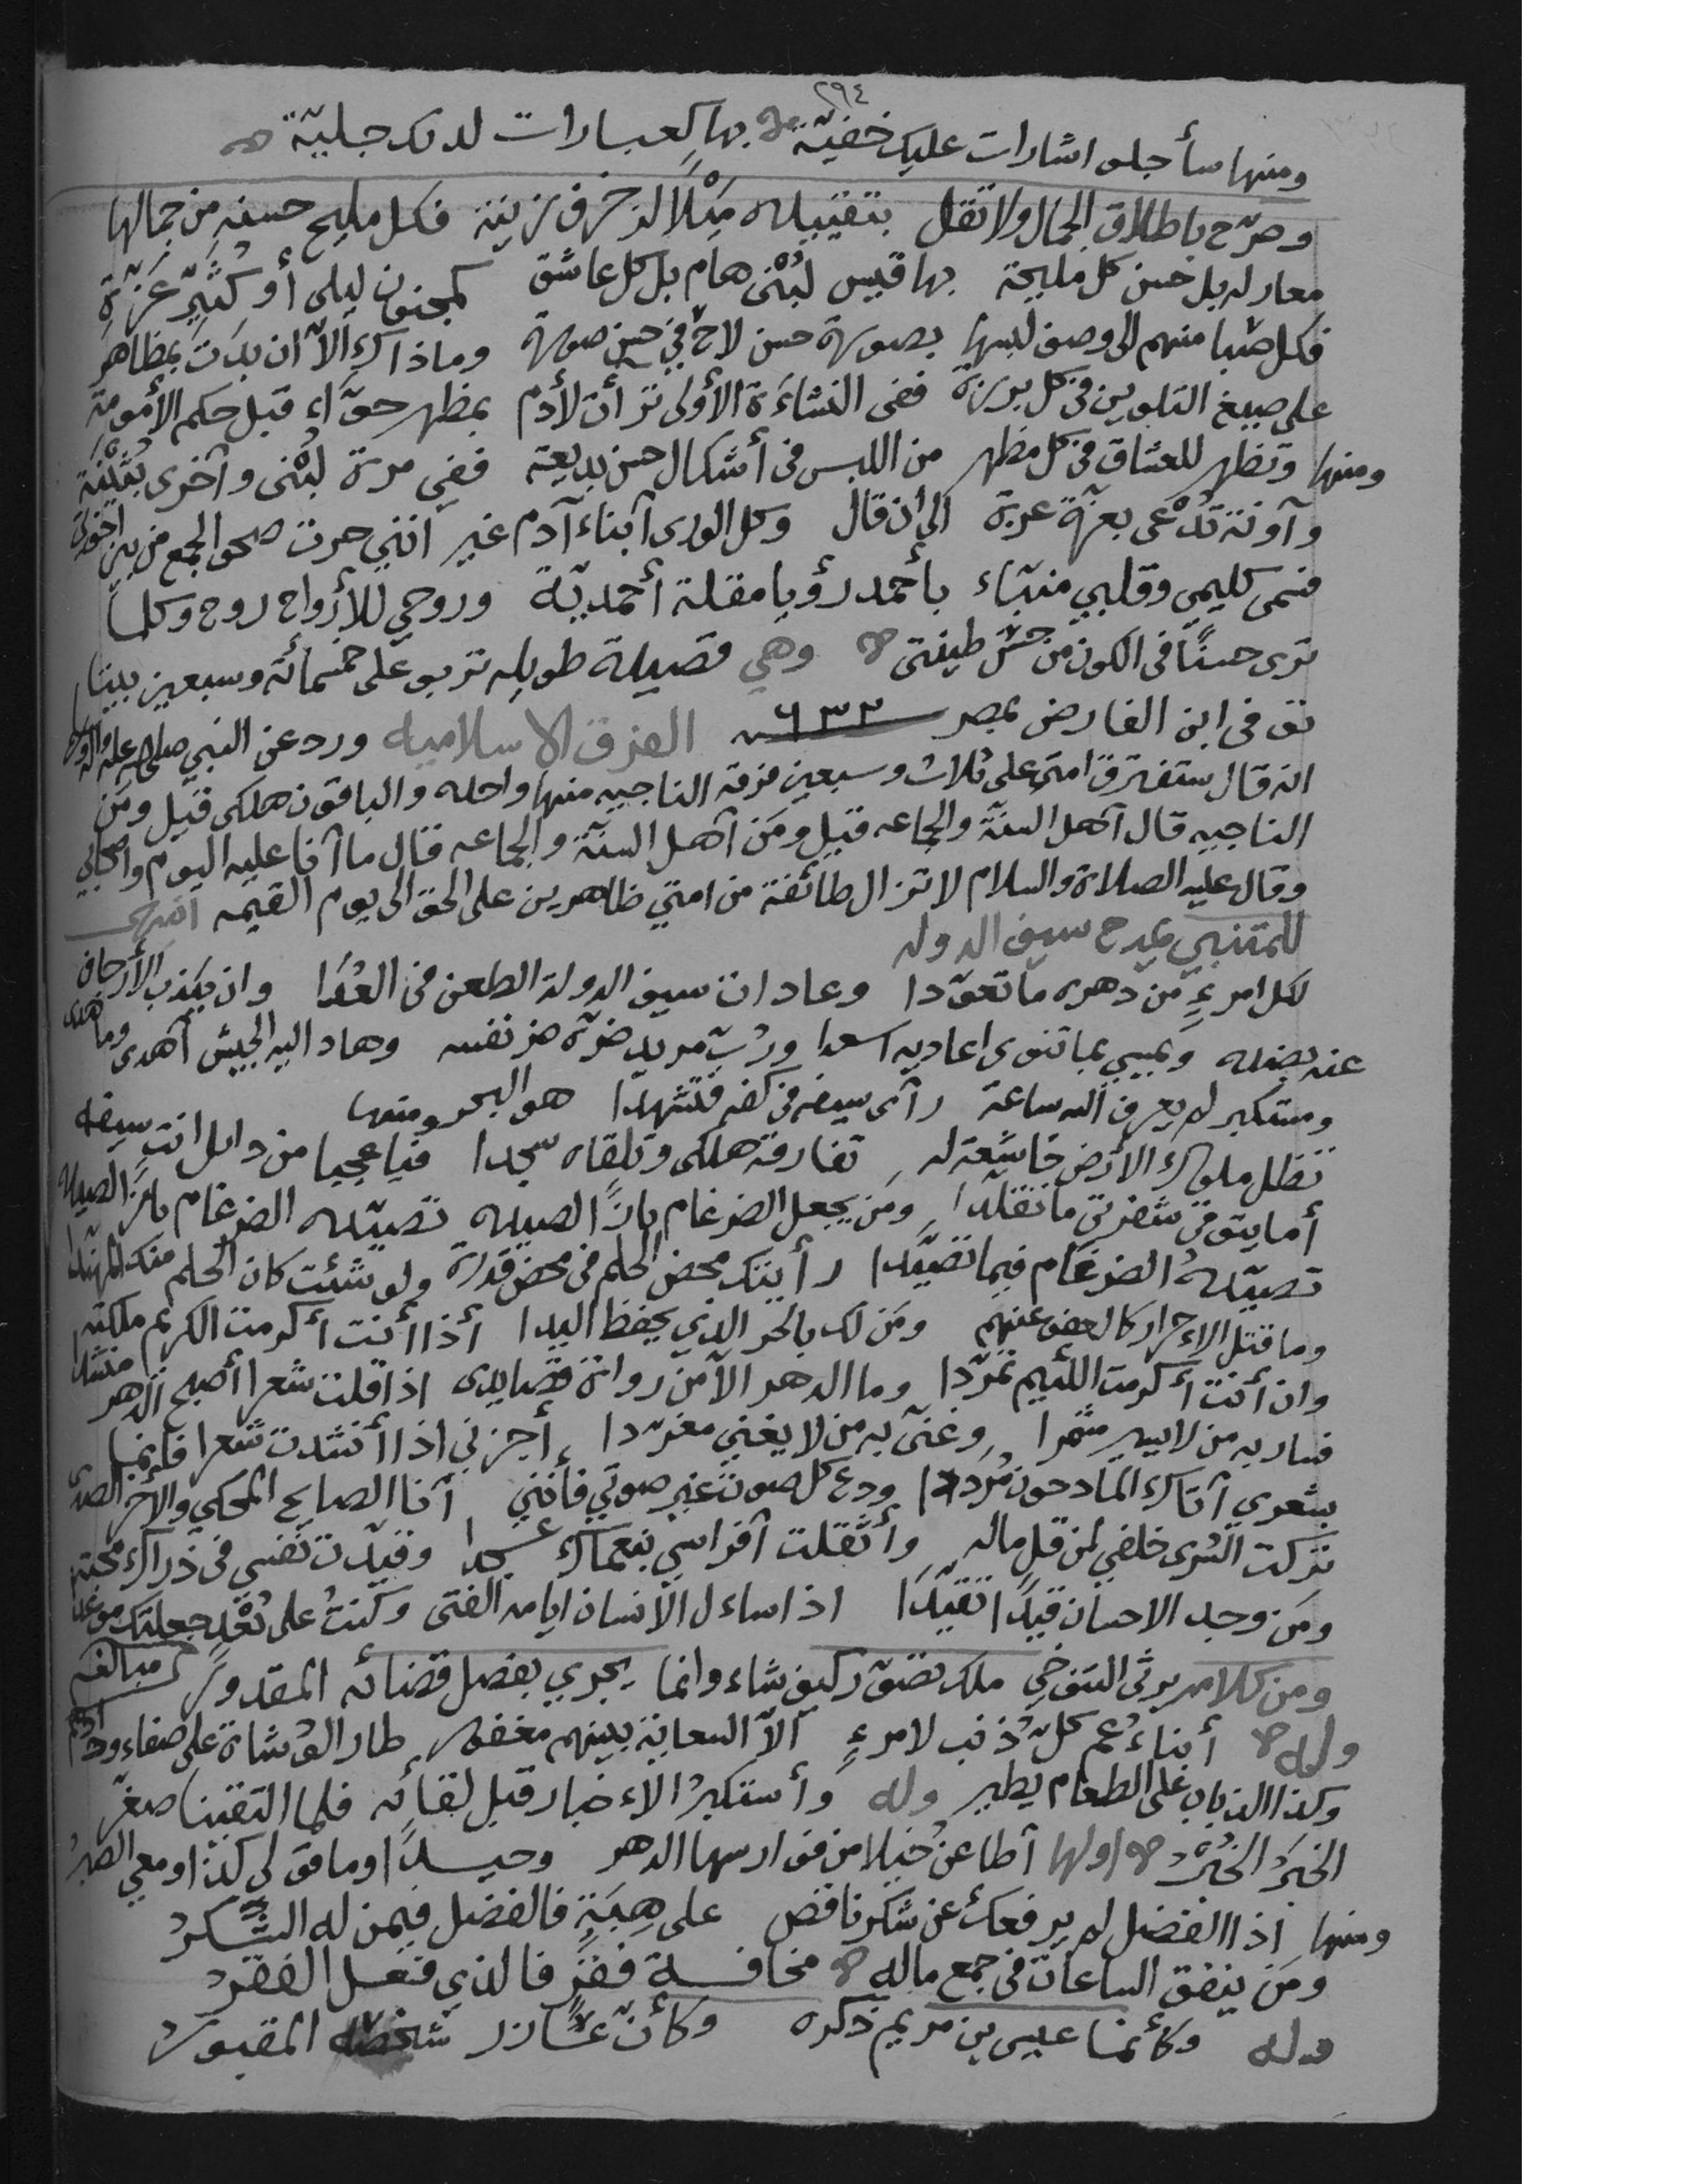 ٢٩٤
ومنها سأجلو اشارات عليك خفية بها كعبارات لديك جلية
وصرّح باطلاق الجمال ولا تقل بتقييده مَيْلًا لزخرف زينة فكل مليح حسنه من جمالها
معار له بل حسن كل مليحة بها قيس لُبْنى هام بل كل عاشق كمجنون ليلى أو كُثَيّر عَزَّةِ
فكل صبا منهم الى وصف لبسها بصورة حسن لاح في حسن صورة وما ذاك الاّ ان بدَتْ بمظاهر
على صبغ التلوين في كل برزة ففى النشاءَة الأولى ترأت لأدم بمظهر حوّاء قبل حكم الأمومة
ومنها وتظهر للعشاق في كل مظهر من اللبس فى أشكال حسن بديعة ففي مرة لُبْنى وآخرى بُثَيْنة
وآونة تُدْعى بعزّة عزة الى ان قال وكل الورى آبناء آدم غير انني حزت صحو الجمع من بين اخوتي
فسمى كليمي وقلبي منبّاء بأحمد رؤيا مقلة أحمديّة وروحي للأرواح روح وكلما
ترى حسنًا فى الكون من طينتى وهي قصيدة طويله تربو على خمسمائة وسبعين بيتا
توفى ابن الفارض بمصر ٦٣٢ الفرق الاسلاميه ورد عن النبي صلى الله عليه وآله
انه قال ستفترق امتى على ثلاث وسبعين فرقة الناجيه منها واحده والباقون هلكى قيل ومَن
الناجيه قال آهل السنّة والجماعه قيل ومَن آهل السنّة والجماعه قال ما آنا عليه اليوم وأصحابي
وقال عليه الصلاة والسلام لا تزال طائفة من امتي ظاهرين على الحق الى يوم القيمه انتهى
للمتنبي يمدح سيف الدوله
لكل امرءٍ من دهره ما تعوّدا وعادات سيف الدولة الطعن في العُدَا وان يكذب الأرجاف
عنه بضده ويمسي بما تنوى اعاديه اسعدا ورُبّ مريد ضرّه ضرّ نفسه وهاد اليه الجيش أهدى وما هدى
ومستكبر لم يعرف الله ساعة رآى سيفه فى كفه فتشهدا هو البحر ومنها
تظل ملوك الأرض خاشعة له تفارقه هلكى وتلقاه سجدا فيا عجبا من دائل انت سيفه
أما يتوقى شفرتي ما تقلّدا ومَن يجعل الضرغام بازًا لصيده تصيّده الضرغام بازًا لصيده
تصيّدهُ الضرغام فيما تصيَّدا رأيتك محض الحلم فى محض قدرة ولو شئت كان الحلم منك المهندا
وما قتل الاءحرار كالعفو عنهم ومَن لك بالحر الذي يحفظ اليدا أذا أنت أكرمت الكريم ملكته
وان أنت أكرمت اللئيم تمرّدا وما الدهر الآ من رواة قصايدى اذا قلت شعرا أصبح الدهر منشدا
فسار به من لا يسير مشمرا وغنّى به من لا يغني مغرّدا أجزني اذا أنشدت شعرا فإنما
بشعري آتاك المادحون مُردّدا ودع كل صوت غير صوتي فأنني آنا الصايح المحكي والآخر الصدى
تركت السُرى خلفي لمن قل ماله وأثقلت آفراسي بنعماك عسجدا وقيدّت نفسى فى ذراك محبة
ومَن وجد الاحسان قيدًا تقيّدَا اذا ساءل الآنسان ايامه الغنى وكنتُ على بُعْدٍ جعلتك موعدا
ومن كلامه يرثى التنوخي ملك تصوّر كيف شاء وانما يجري بفصل قضائه المقدور مبالغه
وله أبناءُ عم كلّ ذنب لامرءٍ الاّ السعاية بينهم مغفور طار الوُشاة على صفاء ودادهم
وكذا الذباب على الطعام يطير وله وأستكبرُ الاءخبار قبل لقائه فلما التقينا صغّر
الخبرَ الخُبْرُ اولها آطاعن خيلا من فوارسها الدهر وحيدًا وما قولي كذا ومعي الصبرُ
ومنها اذا الفضل لم يرفعك عن شكر ناقص على هِبَةٍ فالفضل فيمن له الشّكرُ
ومَن ينفق الساعات فى جمع ماله مخافة فقرٍ فالذي فعل الفقرُ
وله وكأنما عيسى بن مريم ذكره وكأن عازر شخصه المقبور